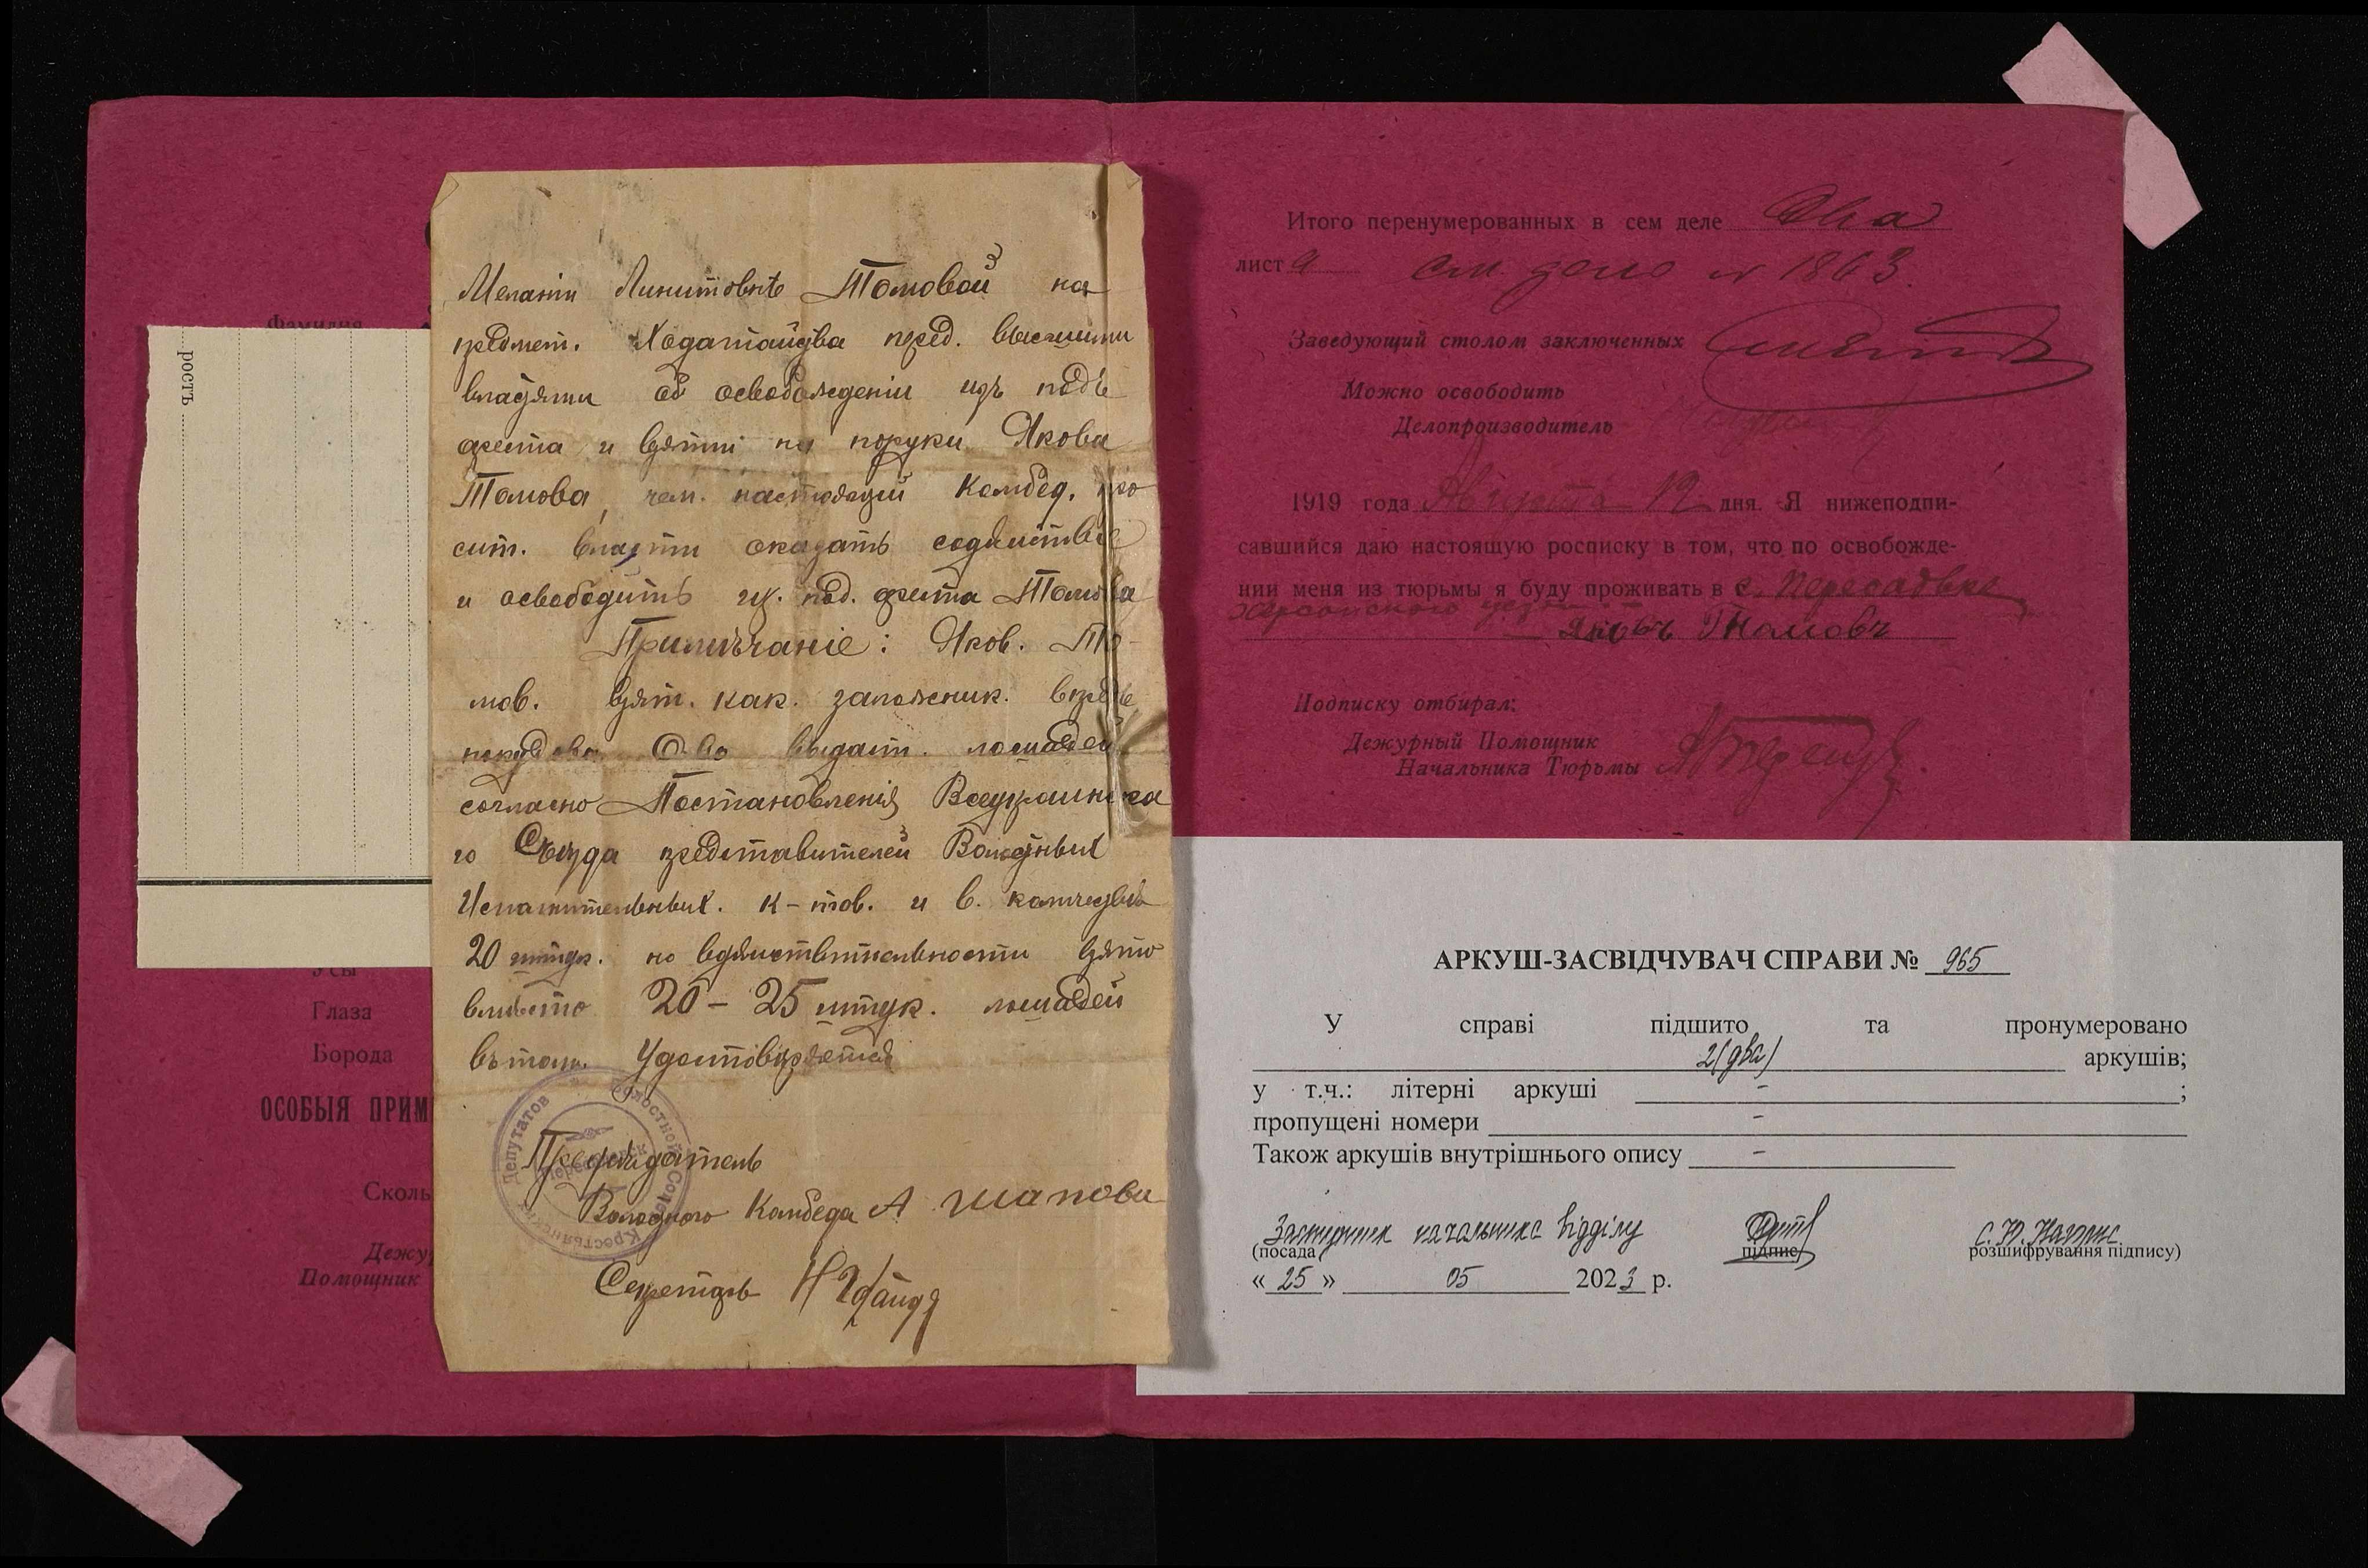 Фамилия
ростъ
Усы
Глаза
Борода
ОСОБЫЯ ПРИМ
Сколь
Дежу
Помощник
Меланіи Никитовнѣ Томовой на
предмет. Ходатайства перед. высшими
властями об освобожденіи изъ подъ
ареста и взятии на поруки Якова
Томова, чем. настоящій Комбед. про
сит. власти оказать содѣйствіе
и освободить из. под. ареста Томова
Примѣчаніе: Яков. То-
мов. взят. как. заложник. впредь
покудова О-во выдаст. лошадей
согласно Постановленія Всеукраинска
го Съезда представителей Волостных
Исполнительных. к-тов. и в. количествѣ
20 штук. но вдѣйствительности взято
вмѣсто 20 – 25 штук. лошадей
въ том. Удостовѣряется
Предсѣдатель
Волостного Комбеда А Шапова
Секретарь
Депутатов
Волостной Совѣт
Крестьянских
Итого перенумерованных в сем деле Два
листа см. дело № 1863.
Заведующий столом заключенных
Можно освободить
Делопроизводитель
1919 года Августа 12 дня. Я нижеподпи-
савшийся даю настоящую росписку в том, что по освобожде-
нии меня из тюрьмы я буду проживать в с. Пересадовке
Херсонского уезда
Яковъ Томовъ
Подписку отбирал:
Дежурный Помощник
Начальника Тюрьмы
АРКУШ-ЗАСВІДЧУВАЧ СПРАВИ № 965
У справі підшито та пронумеровано
2 (два) аркушів;
у т.ч.: літерні аркуші - ;
пропущені номери -
Також аркушів внутрішнього опису -
Заступник начальника відділу
(посада підпис розшифрування підпису)
« 25 » 05 2023 р.